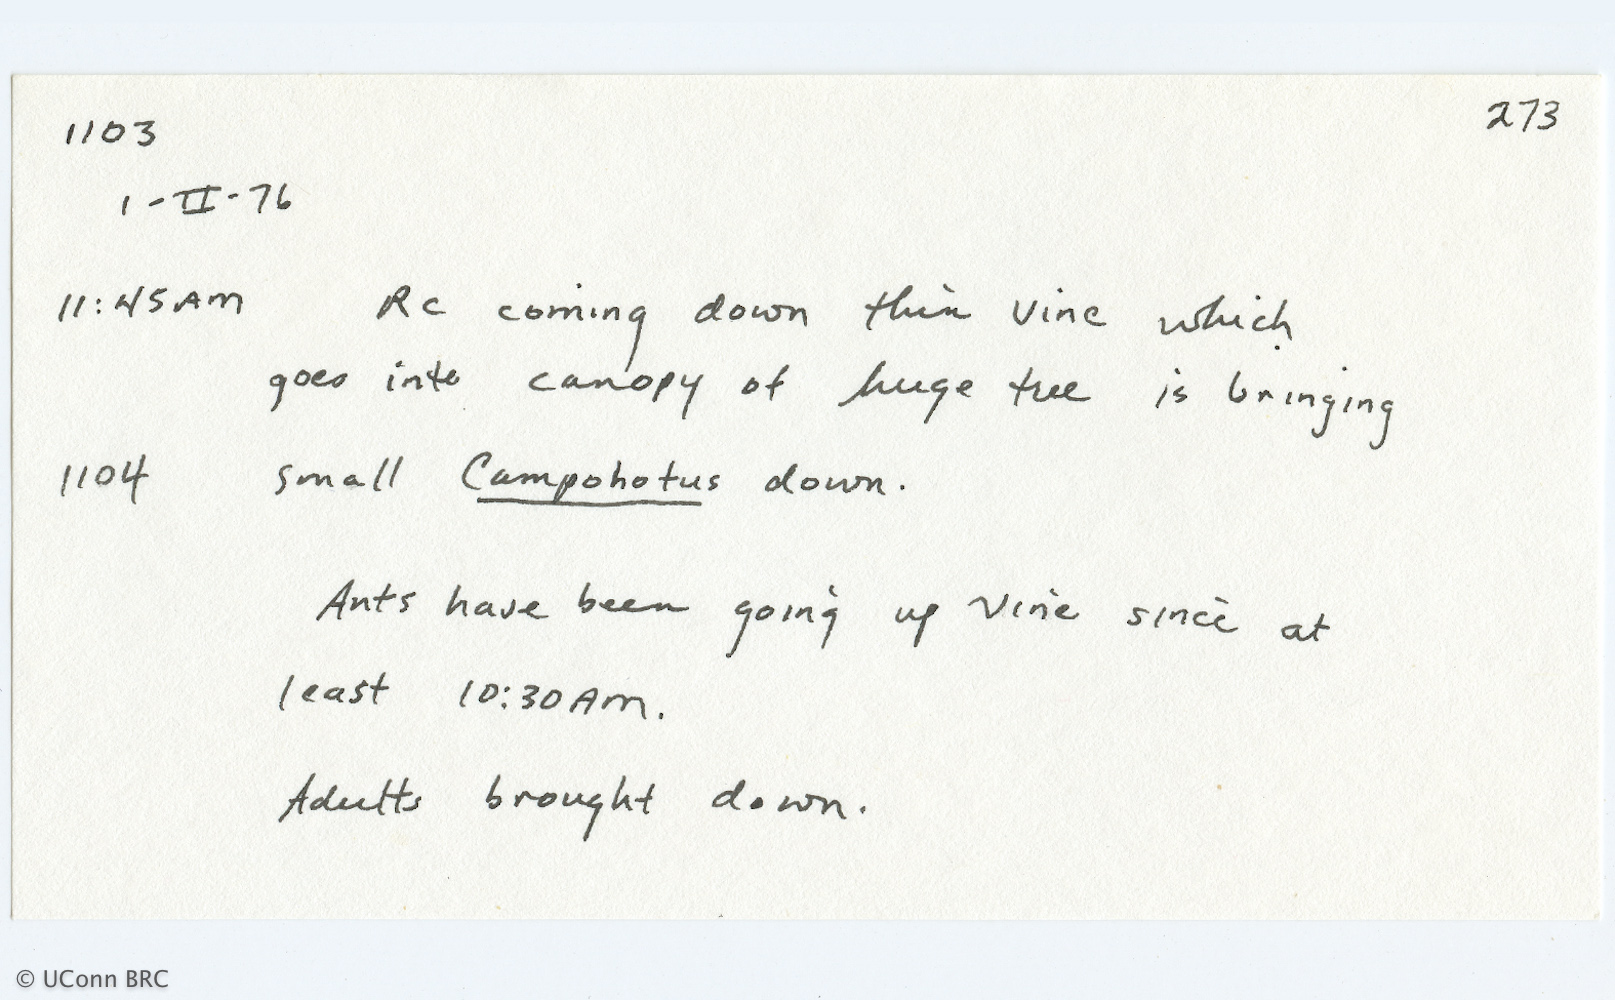 1103
273
1-II-76
11:45AM Rc coming down thin vine which
goes into canopy of huge tree is bringing
1104 small Camponotus down.
Ants have been going up vine since at
least 10:30AM.
Adults brought down.
© UConn BRC